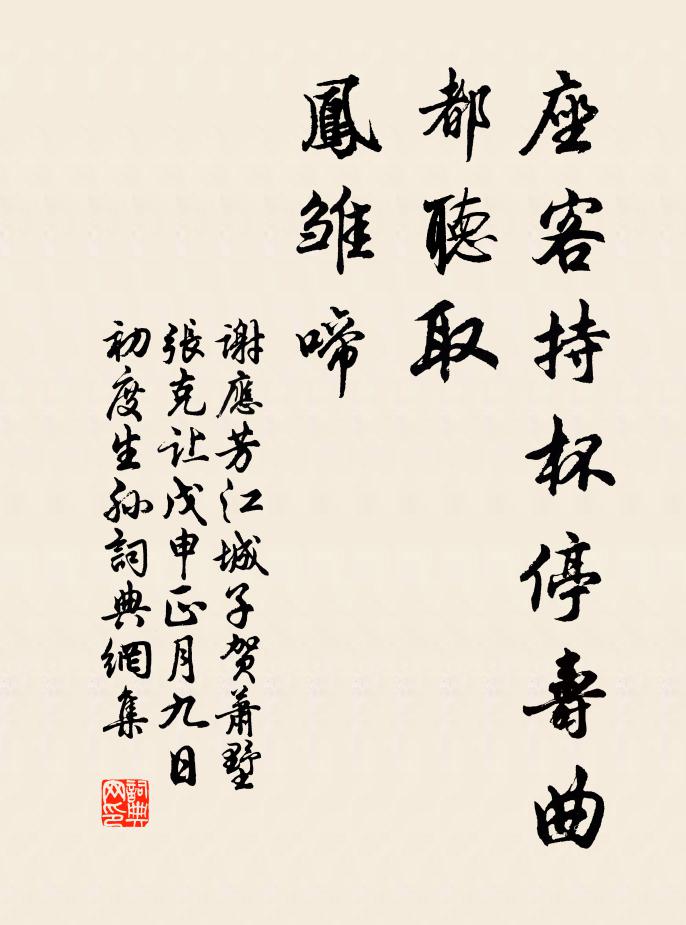 座客持杯停壽曲
都聽取
鳳雏啼
谢應芳江城子贺萧墅
張克让戊申正月九日
初度生孙詞典網集
詞典网印